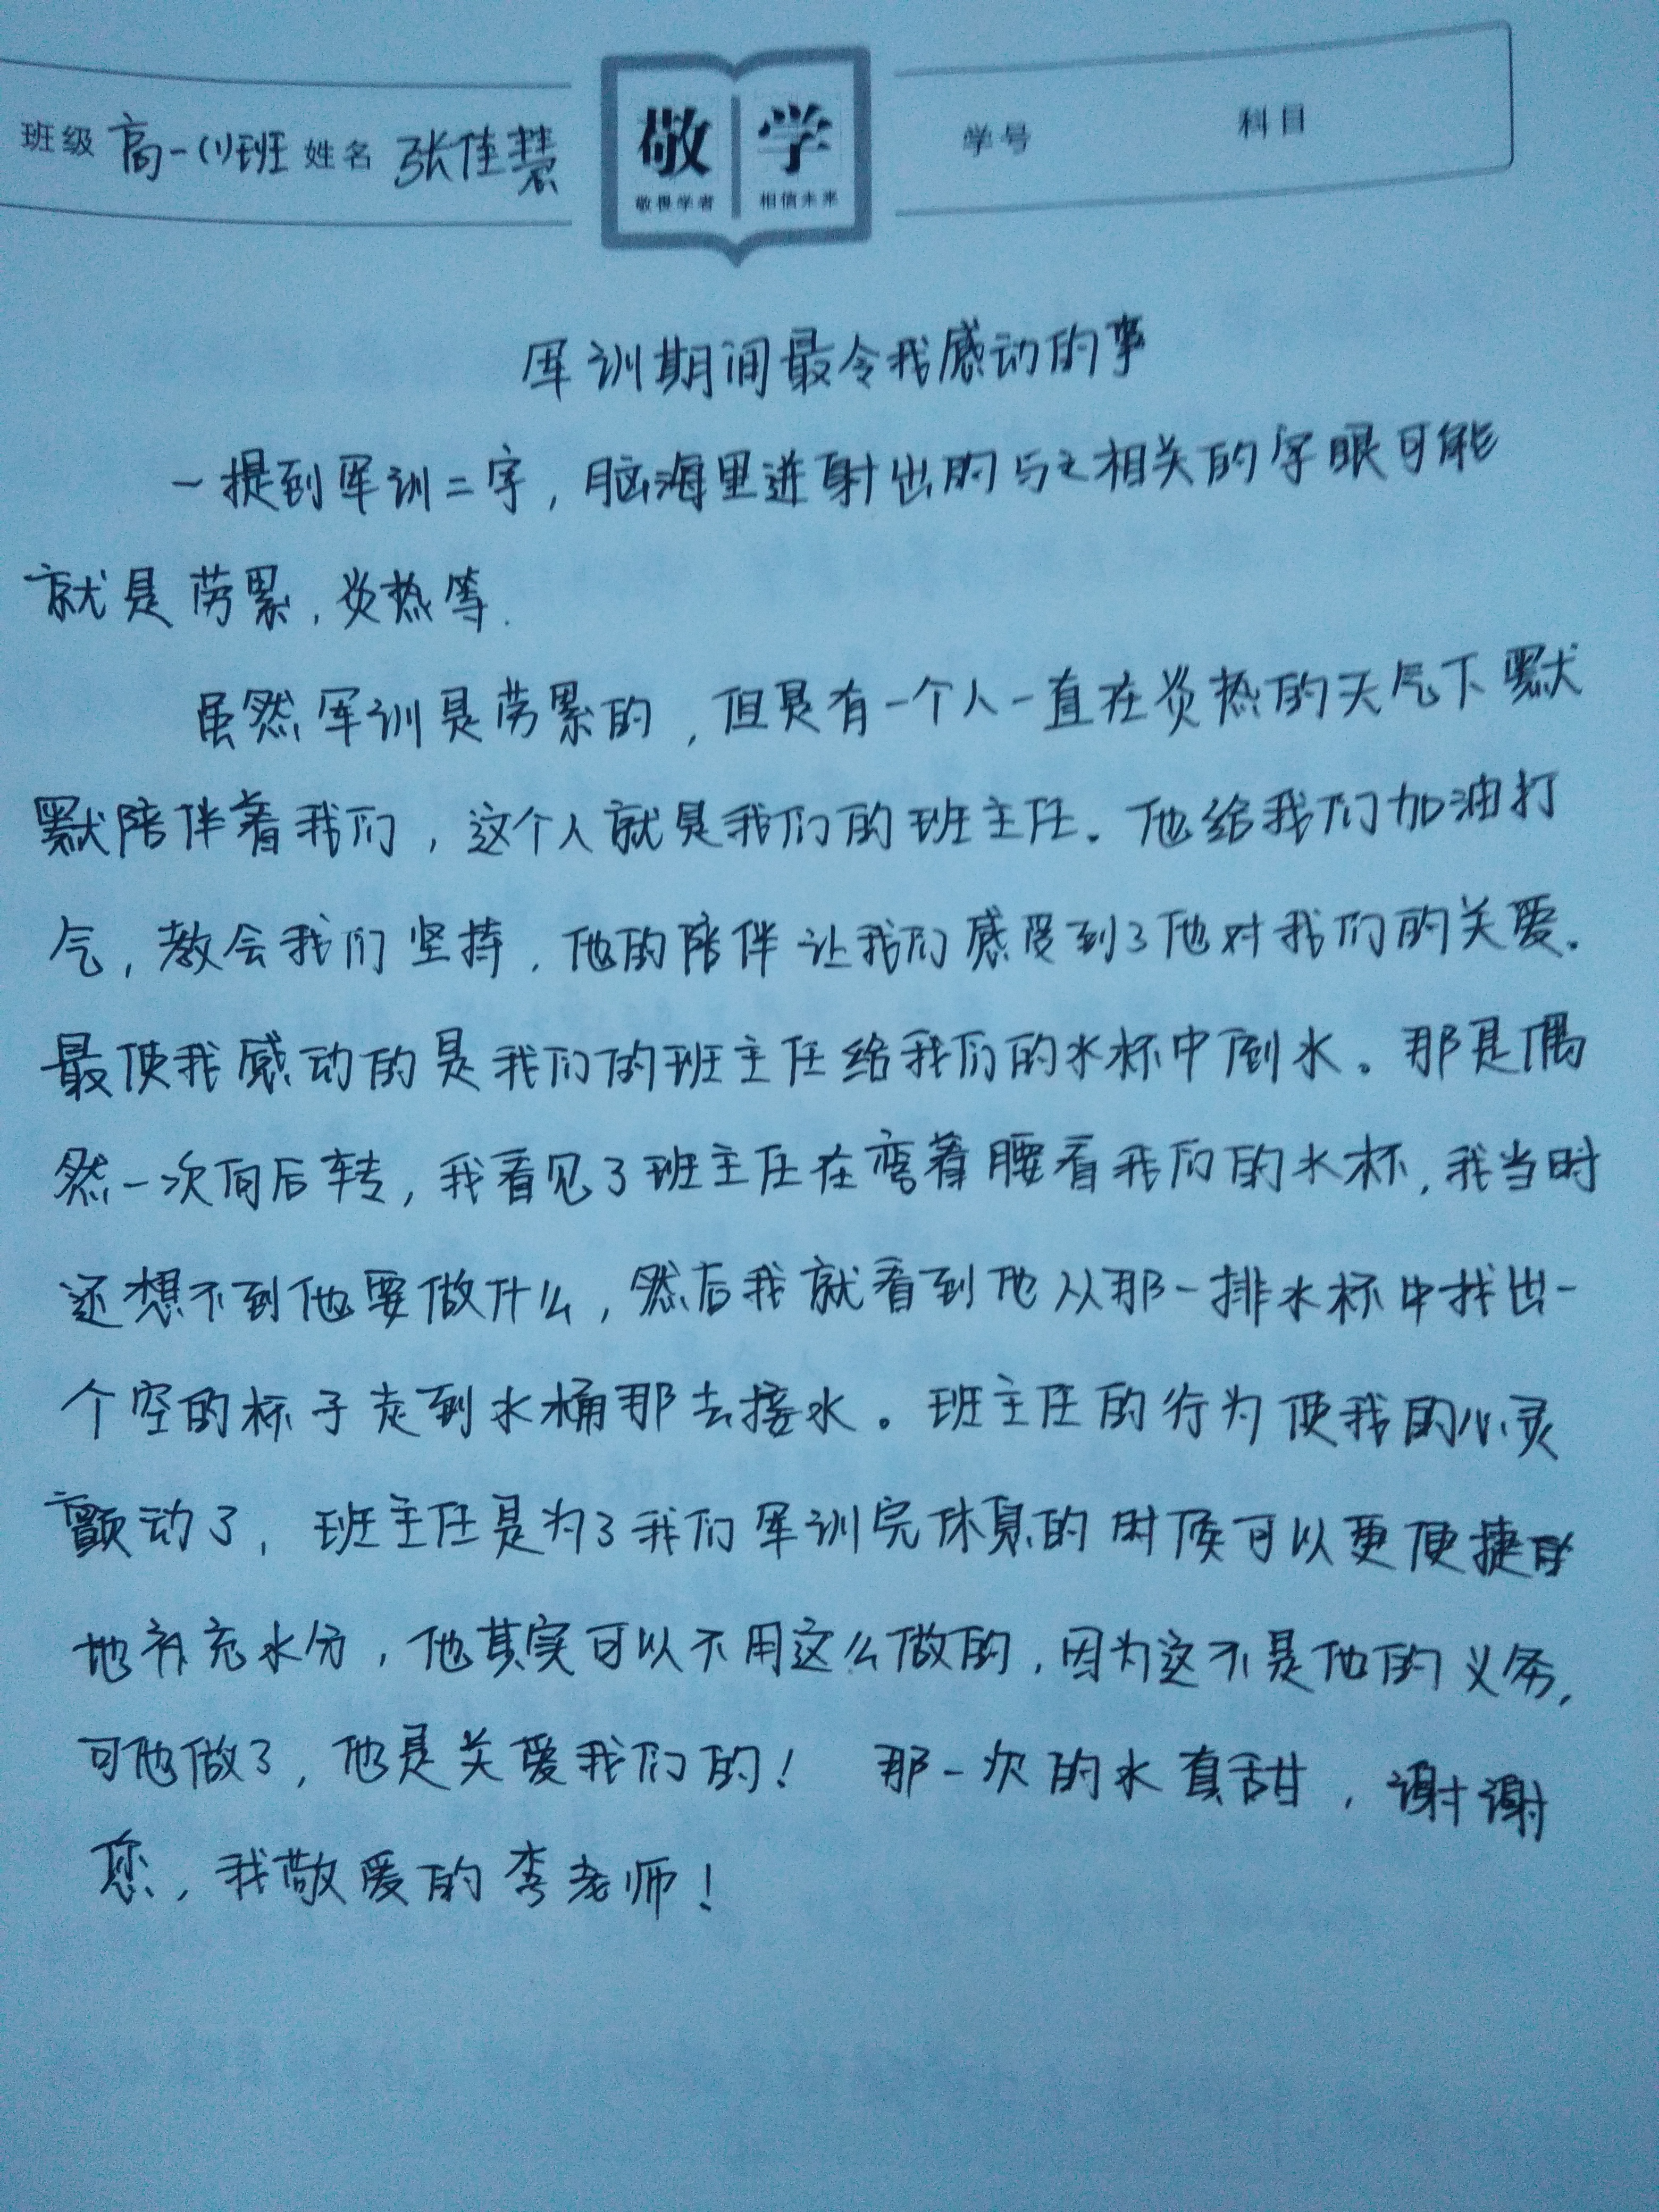 班级 高一(1)班 姓名 张佳慧 敬 学 学号 科目
敬畏学者 相信未来
军训期间最令我感动的事
一提到军训二字，脑海里迸射出的与之相关的字眼可能
就是劳累，炎热等.
虽然军训是劳累的，但是有一个人一直在炎热的天气下默
默陪伴着我们，这个人就是我们的班主任。他给我们加油打
气，教会我们坚持，他的陪伴让我们感受到了他对我们的关爱。
最使我感动的是我们的班主任给我们的水杯中倒水。那是偶
然一次向后转，我看见了班主任在弯着腰看我们的水杯，我当时
还想不到他要做什么，然后我就看到他从那一排水杯中找出一
个空的杯子走到水桶那去接水。班主任的行为使我的心灵
颤动了，班主任是为了我们军训完休息的时候可以更便捷
地补充水分，他其实可以不用这么做的，因为这不是他的义务，
可他做了，他是关爱我们的！ 那一次的水真甜，谢谢
您，我敬爱的李老师！